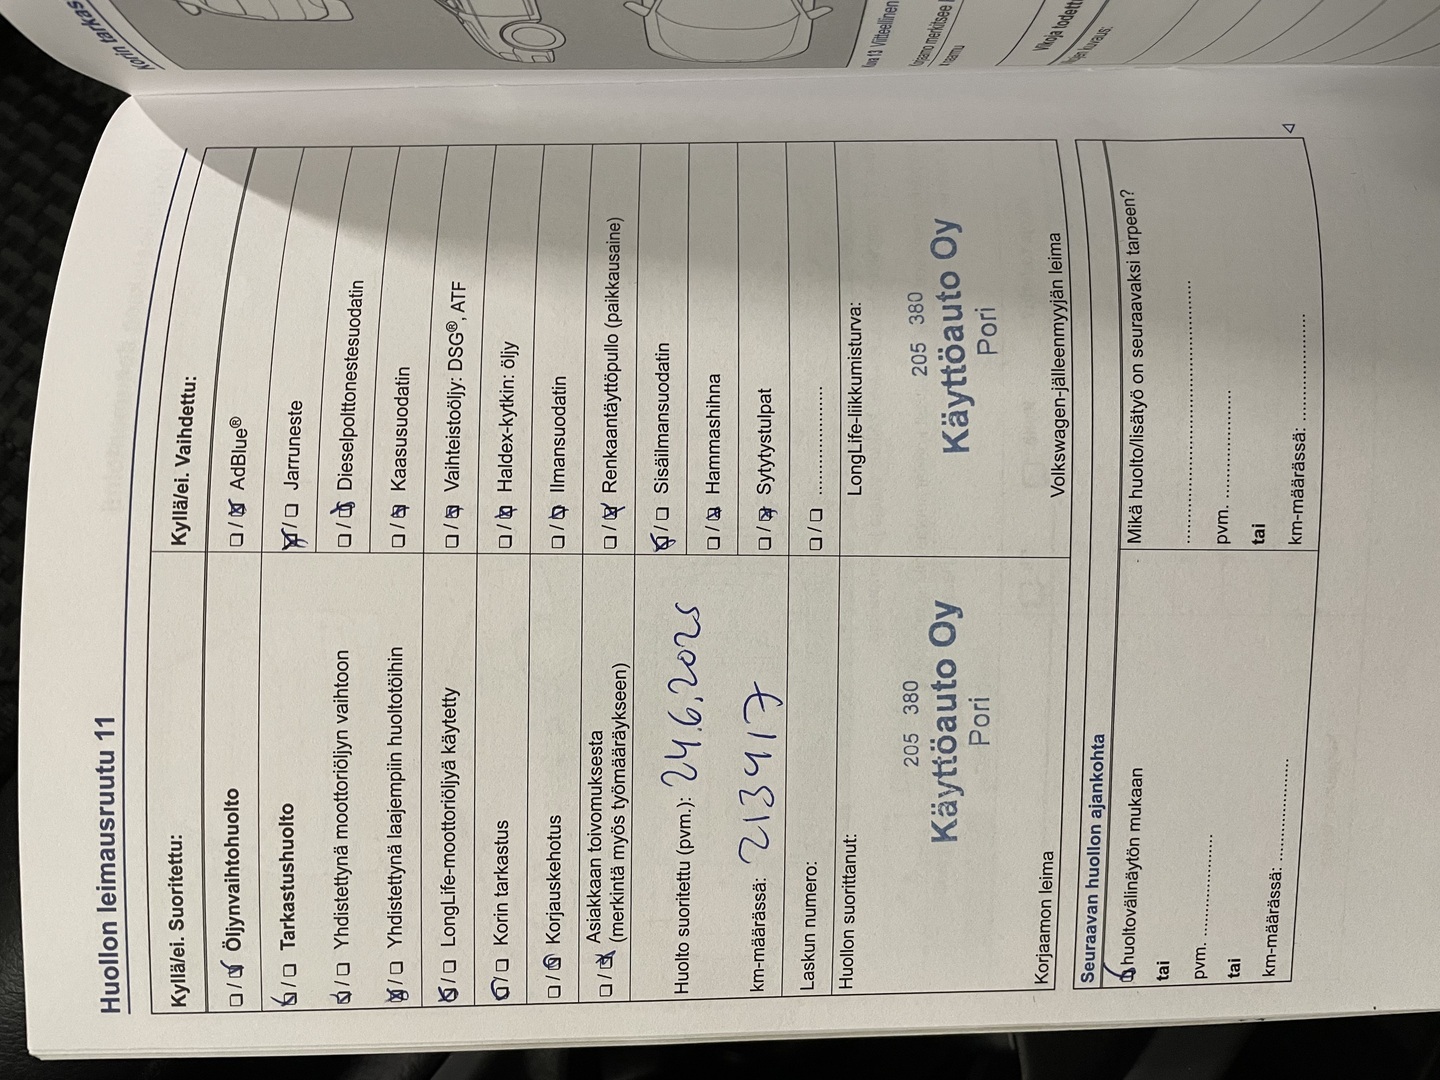 Huollon leimausruutu 11
Kyllä/ei. Suoritettu:
☐ / ☒ Öljynvaihtohuolto
☒ / ☐ Tarkastushuolto
☒ / ☐ Yhdistettynä moottoriöljyn vaihtoon
☒ / ☐ Yhdistettynä laajempiin huoltotöihin
☒ / ☐ LongLife-moottoriöljyä käytetty
☒ / ☐ Korin tarkastus
☐ / ☒ Korjauskehotus
☐ / ☒ Asiakkaan toivomuksesta
(merkintä myös työmääräykseen)
Huolto suoritettu (pvm.): 24.6.2025
km-määrässä: 213417
Laskun numero:
Huollon suorittanut:
205 380
Käyttöauto Oy
Pori
Korjaamon leima
Kyllä/ei. Vaihdettu:
☐ / ☒ AdBlue®
☒ / ☐ Jarruneste
☐ / ☒ Dieselpolttonestesuodatin
☐ / ☒ Kaasusuodatin
☐ / ☒ Vaihteistoöljy: DSG®, ATF
☐ / ☒ Haldex-kytkin: öljy
☐ / ☒ Ilmansuodatin
☐ / ☒ Renkaantäyttöpullo (paikkausaine)
☒ / ☐ Sisäilmansuodatin
☐ / ☒ Hammashihna
☐ / ☒ Sytytystulpat
☐ / ☐ ..................
LongLife-liikkumisturva:
205 380
Käyttöauto Oy
Pori
Volkswagen-jälleenmyyjän leima
Seuraavan huollon ajankohta
☒ huoltovälinäytön mukaan
tai
pvm. ..................
tai
km-määrässä: ..................
Mikä huolto/lisätyö on seuraavaksi tarpeen?
..........................................
pvm. ..................
tai
km-määrässä: ..................
Korin tarkas
13 Viitteellinen
merkitsee
Vikoja todett
kuvaus: